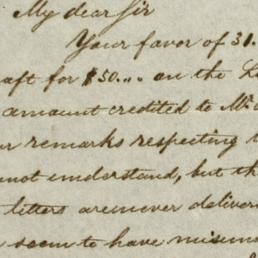 My dear Sir
Your favor of 31.
aft for $50... on the
amount credited to Mr.
remarks respecting
not understand, but th
letters are never deliver
seem to have misun